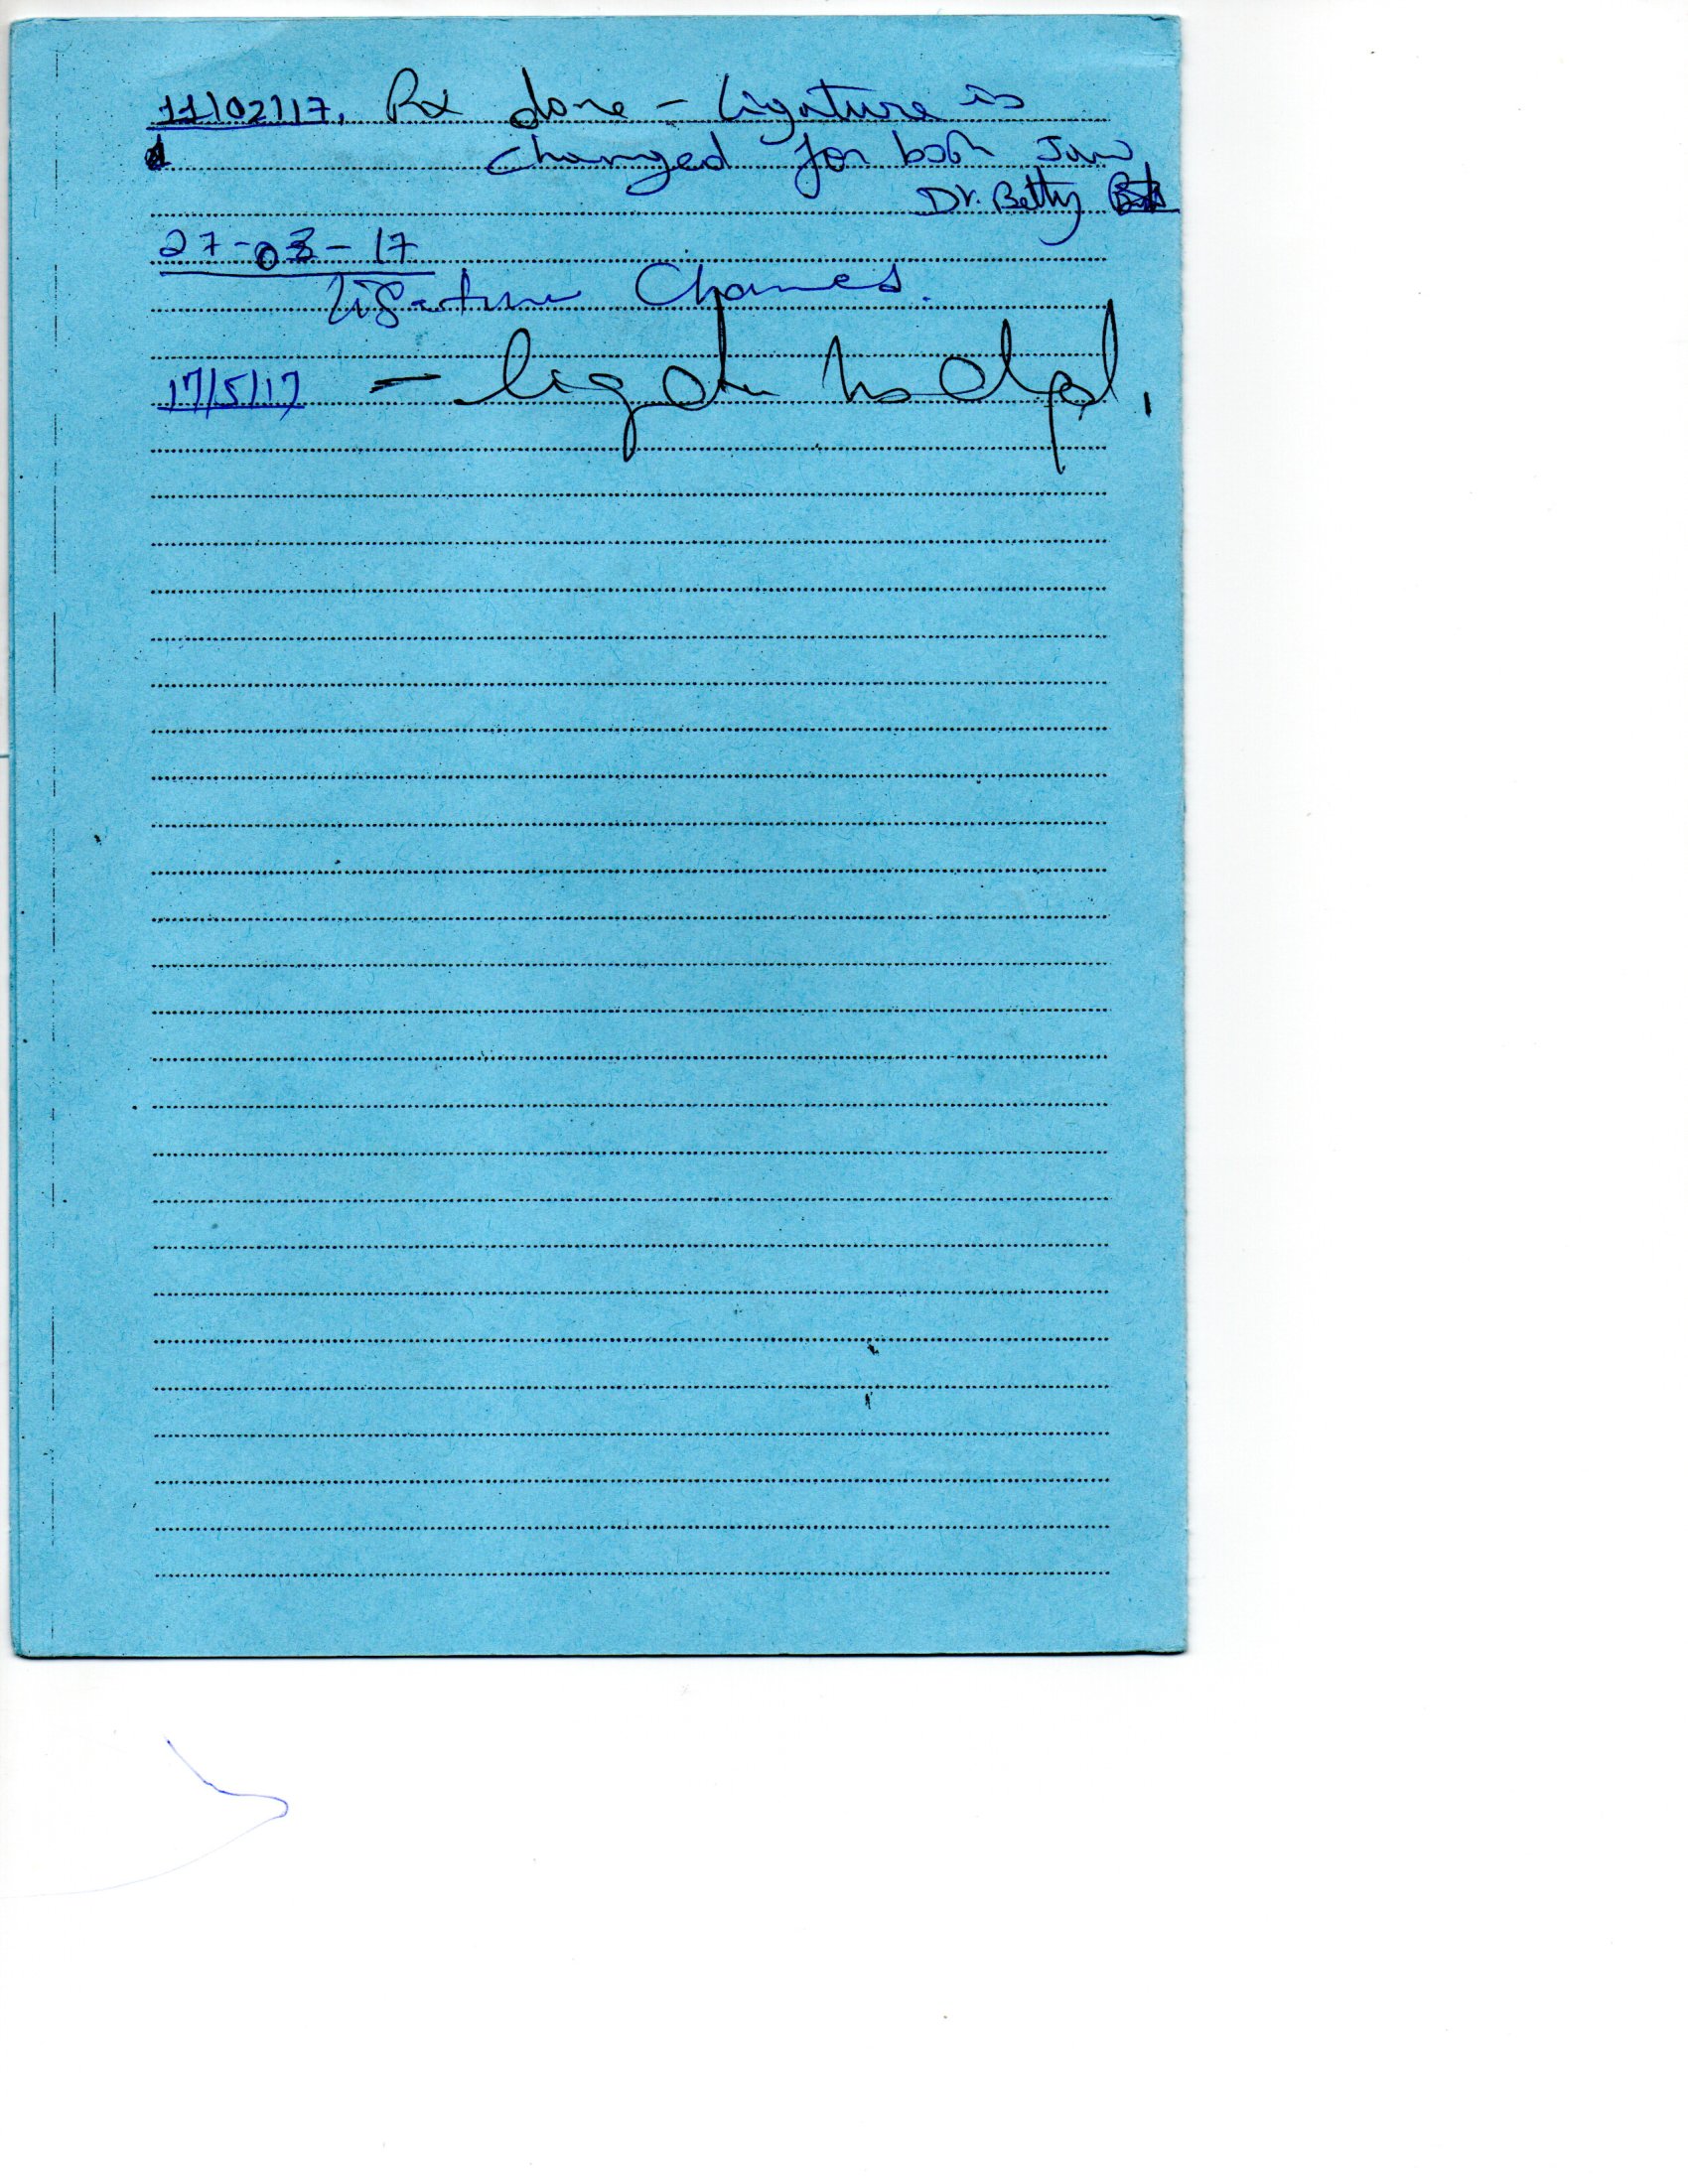 11/02/17. Rx done - Ligature is
changed for both Jaw
Dr. Betty
27-03-17
Ligature
17/5/17 -